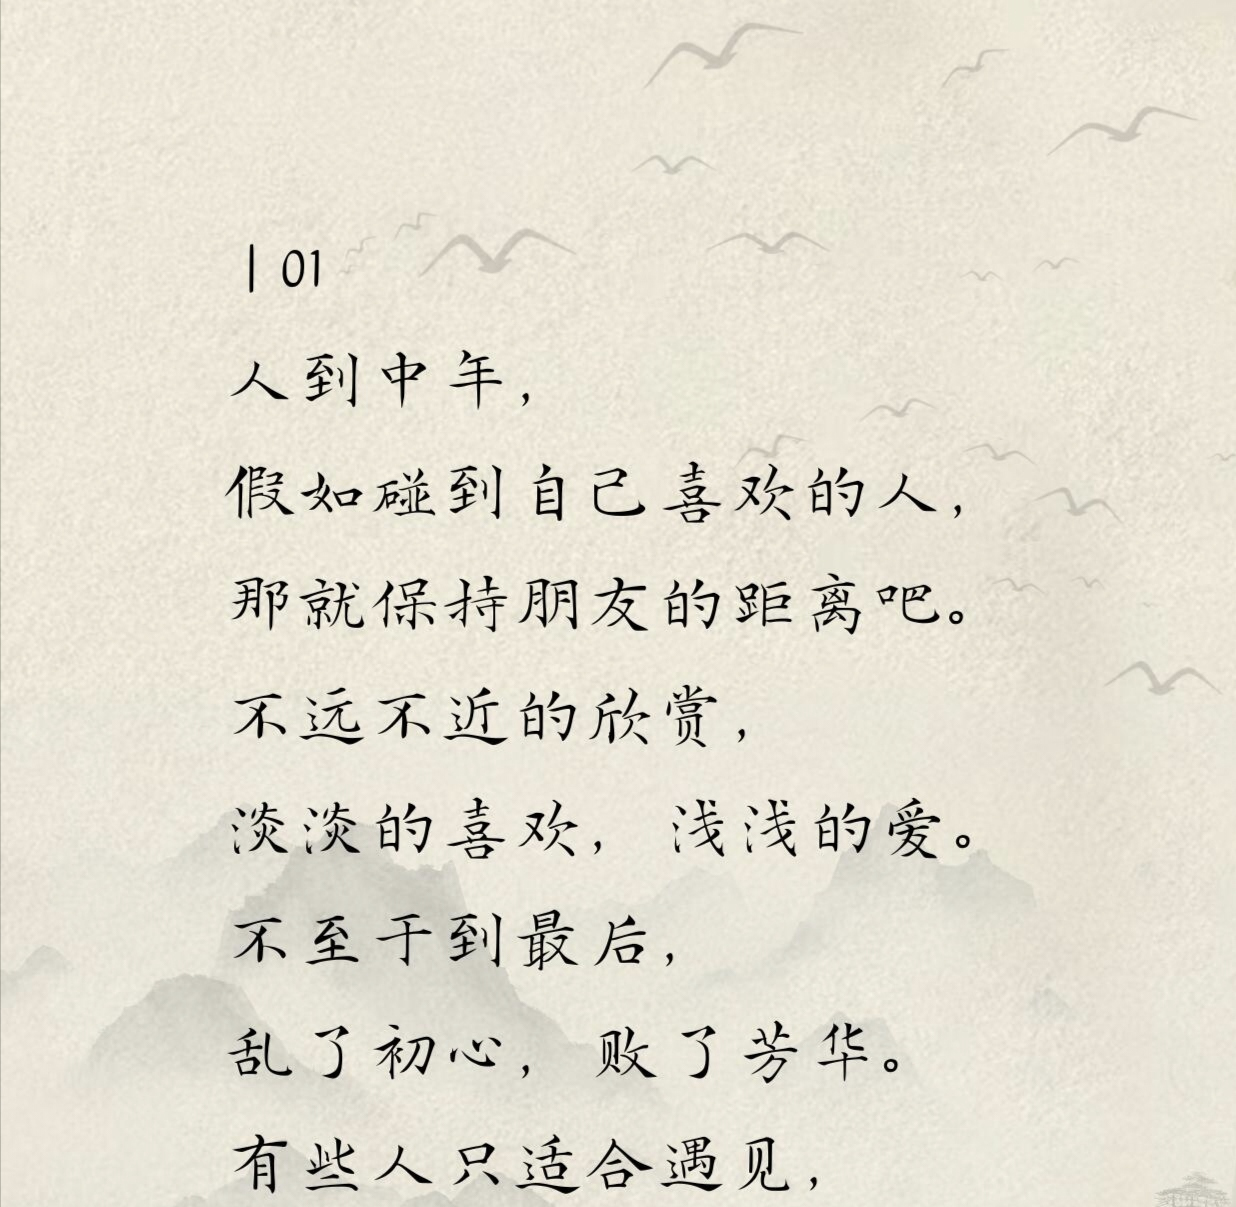 | 01
人到中年，
假如碰到自己喜欢的人，
那就保持朋友的距离吧。
不远不近的欣赏，
淡淡的喜欢，浅浅的爱。
不至于到最后，
乱了初心，败了芳华。
有些人只适合遇见，